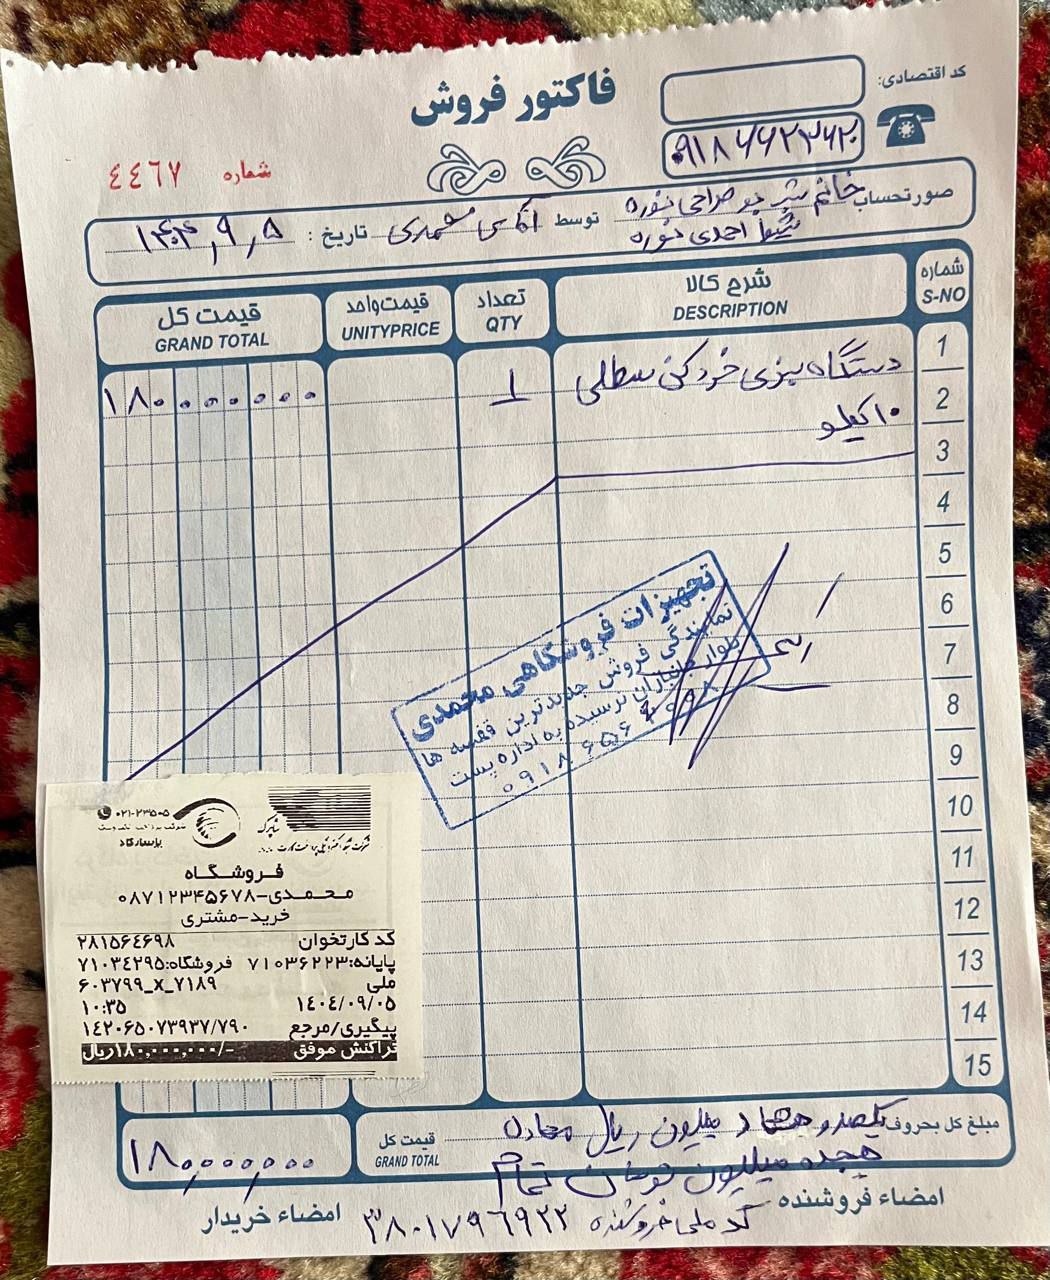 فاکتور فروش
کد اقتصادی:
۰۹۱۸۶۶۲۳۶۲۰
شماره ٤٤٦٧
صورتحساب خانم
شیوا احمدی توسط آقای محمدی تاریخ: ۱۴۰۴,۹,۵
شماره S-NO
شرح کالا DESCRIPTION
تعداد QTY
قیمت واحد UNITYPRICE
قیمت کل GRAND TOTAL
1 دستگاه سبزی خردکنی سطلی 1 ۱۸۰۰۰۰۰۰۰
2 ۱۰ کیلو
3
4
5
6
7
8
9
10
11
12
13
14
15
تجهیزات فروشگاهی محمدی
نمایندگی فروش جدیدترین قفسه ها
بلوار جانبازان نرسیده به اداره پست
شاپرک
۰۲۱-۲۳۵۰۵
پاسارگاد
فروشگاه
محمدی-۰۸۷۱۲۳۴۵۶۷۸
خرید-مشتری
کد کارتخوان ۲۸۱۵۶۴۶۹۸
پایانه:۷۱۰۳۶۲۲۳ فروشگاه:۷۱۰۳۴۲۹۵
ملی
۶۰۳۷۹۹_X_۷۱۸۹
۱۴۰۴/۰۹/۰۵ ۱۰:۳۵
پیگیری/مرجع ۱۴۲۰۶۵۰۷۳۹۳۷/۷۹۰
تراکنش موفق ۱۸۰,۰۰۰,۰۰۰/-ریال
مبلغ کل بحروف یکصد و هشتاد میلیون ریال معادل
هیجده میلیون تومان تمام
قیمت کل GRAND TOTAL ۱۸۰,۰۰۰,۰۰۰
امضاء فروشنده
کد ملی فروشنده ۳۸۰۱۷۹۶۹۲۲
امضاء خریدار